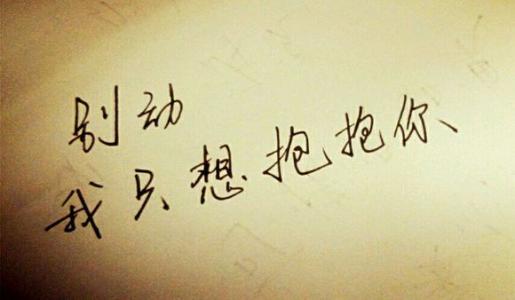 别动
我只想抱抱你